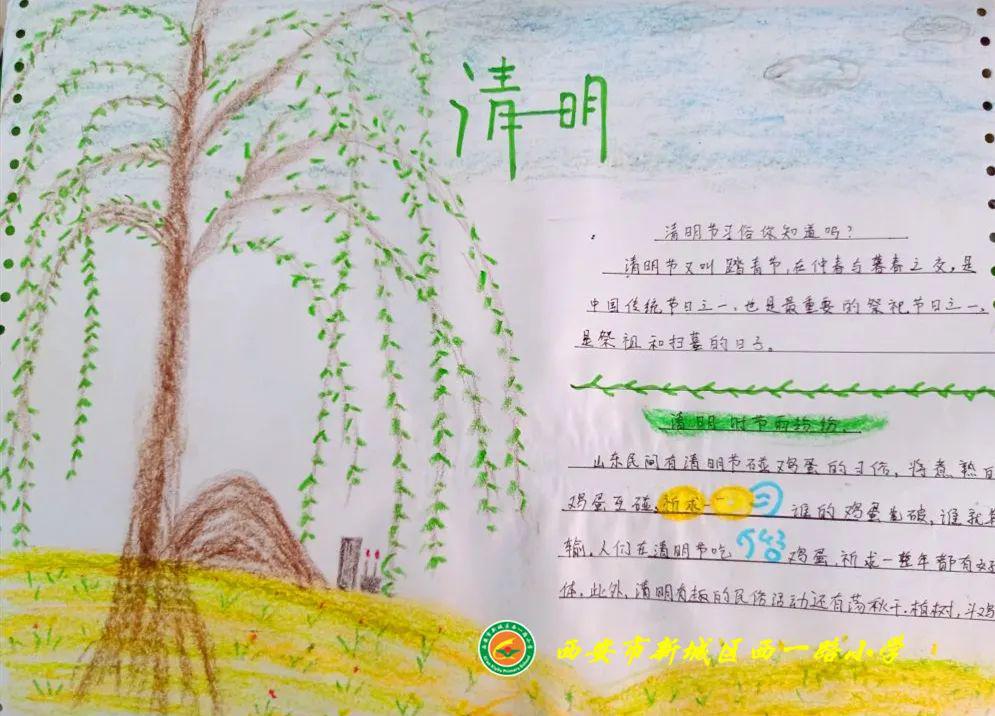 清明
清明节习俗你知道吗？
清明节又叫踏青节，在仲春与暮春之交，是
中国传统节日之一，也是最重要的祭祀节日之一，
是祭祖和扫墓的日子。
清明时节雨纷纷。
山东民间有清明节碰鸡蛋的习俗，将煮熟的
鸡蛋互碰，祈求一 谁的鸡蛋 破，谁就
输，人们在清明节吃 鸡蛋，祈求一整年都有好
体，此外，清明有趣的民俗活动还有荡秋千，植树，斗鸡
西安市新城区西一路小学